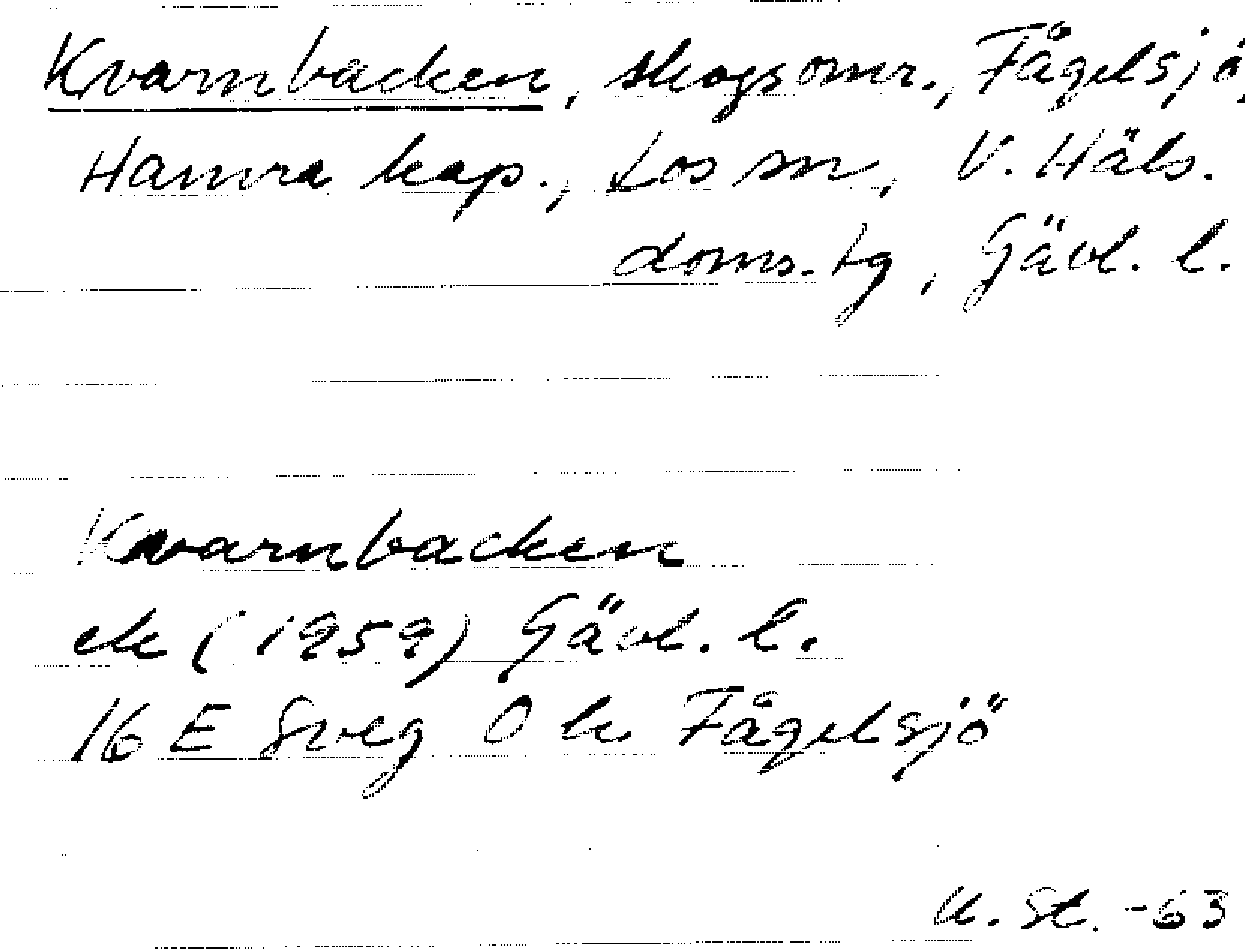 Kvarnbacken, skogsomr., Fågelsjö,
Hamra kap., Los sn, V. Häls.
doms. tg, Gävl. l.
Kvarnbacken
ek (1959) Gävl. l.
16 E Sveg 0 k Fågelsjö
U. St. -63